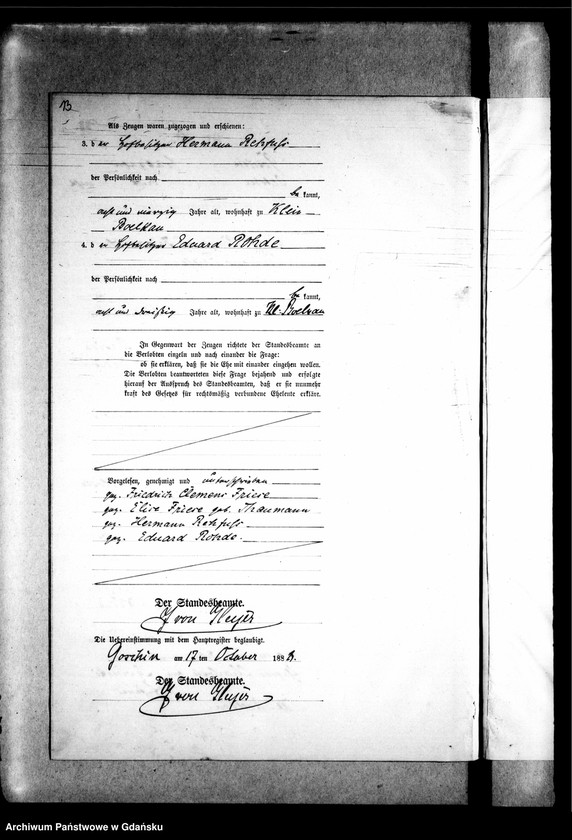 13
Als Zeugen waren zugezogen und erschienen:
3. d er Hofbesitzer Hermann Rehfuß
der Persönlichkeit nach
be kannt,
acht und vierzig Jahre alt, wohnhaft zu Klein
Boelkau
4. d er Hofbesitzer Eduard Rohde
der Persönlichkeit nach
be kannt,
acht und dreißig Jahre alt, wohnhaft zu Kl. Boelkau
In Gegenwart der Zeugen richtete der Standesbeamte an
die Verlobten einzeln und nach einander die Frage:
ob sie erklären, daß sie die Ehe mit einander eingehen wollen.
Die Verlobten beantworteten diese Frage bejahend und erfolgte
hierauf der Ausspruch des Standesbeamten, daß er sie nunmehr
kraft des Gesetzes für rechtsmäßig verbundene Eheleute erkläre.
Vorgelesen, genehmigt und unterschrieben
gez. Friedrich Clemens Friese
gez. Elise Friese geb. Thaumann
gez. Hermann Rehfuß
gez. Eduard Rohde.
Der Standesbeamte.
von Heyer
Die Uebereinstimmung mit dem Hauptregister beglaubigt.
am 17 ten October 188
Der Standesbeamte.
von Heyer
Archiwum Państwowe w Gdańsku